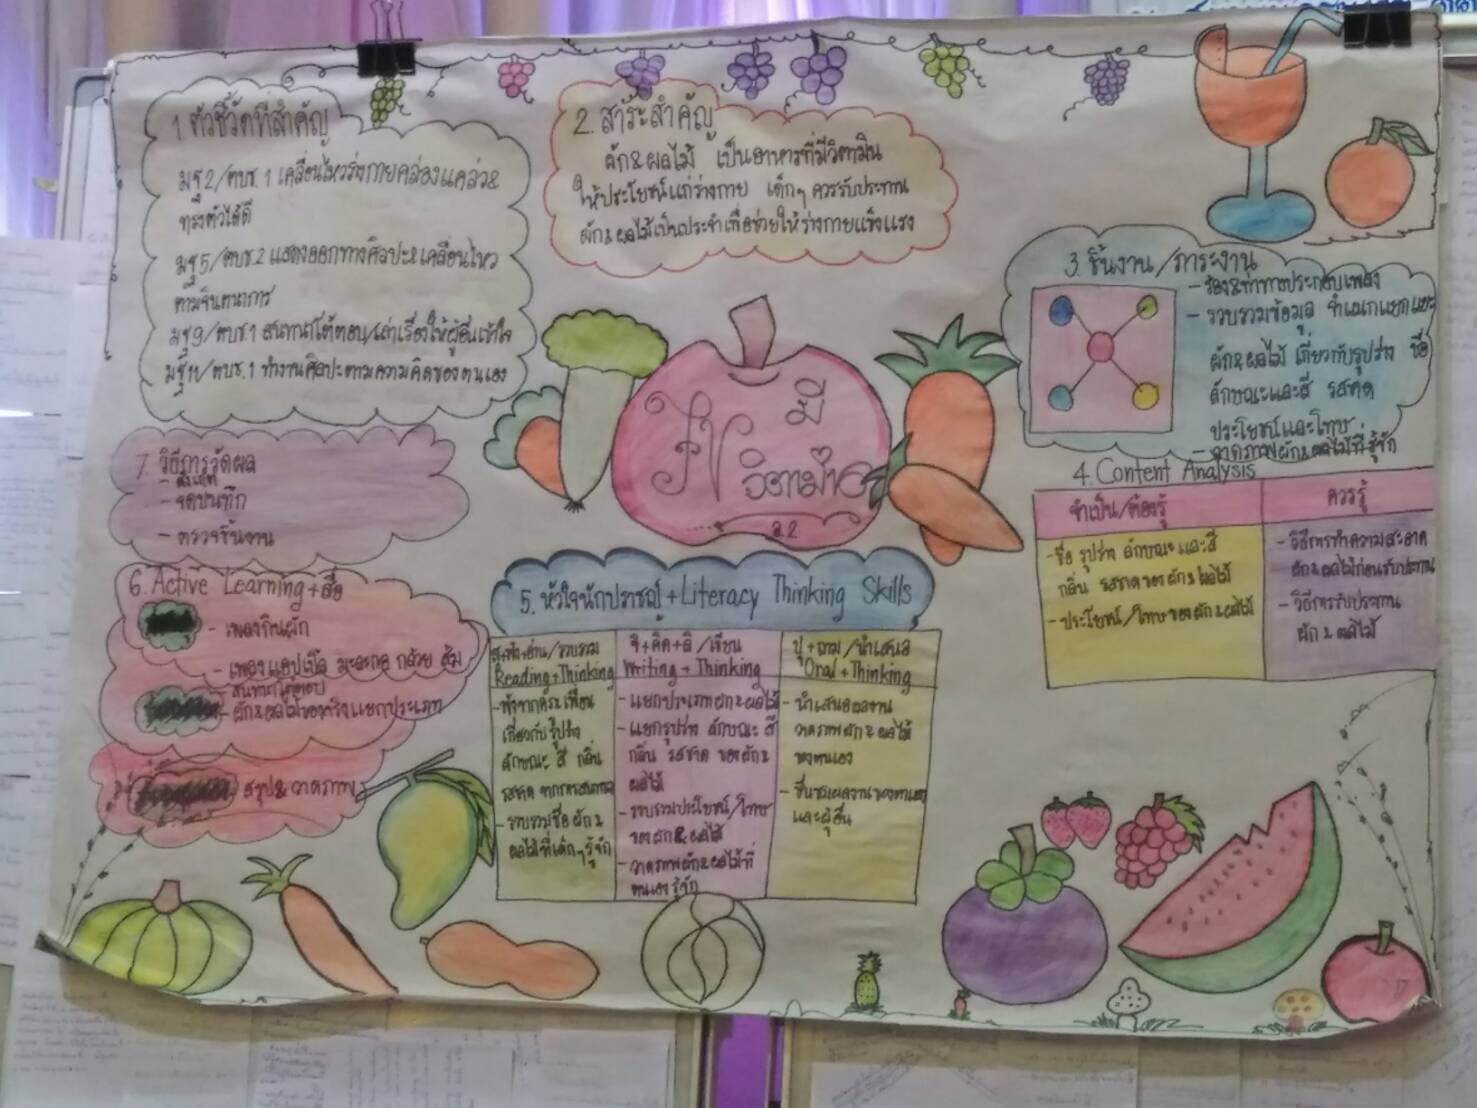 1. ตัวชี้วัดที่สำคัญ
มฐ2/ตบช.1 เคลื่อนไหวร่างกายคล่องแคล่ว&
ทรงตัวได้ดี
มฐ5/ตบช.2 แสดงออกทางศิลปะ&เคลื่อนไหว
ตามจินตนาการ
มฐ9/ตบช.1 สนทนาโต้ตอบ/เล่าเรื่องให้ผู้อื่นเข้าใจ
มฐ11/ตบช.1 ทำงานศิลปะตามความคิดของตนเอง
2. สาระสำคัญ
ผัก&ผลไม้ เป็นอาหารที่มีวิตามิน
ให้ประโยชน์แก่ร่างกาย เด็กๆ ควรรับประทาน
ผัก&ผลไม้เป็นประจำเพื่อช่วยให้ร่างกายแข็งแรง
3. ชิ้นงาน/ภาระงาน
- ร้อง&ท่าทางประกอบเพลง
- รวบรวมข้อมูล จำแนกแยกแยะ
ผัก&ผลไม้ เกี่ยวกับรูปร่าง ชื่อ
ลักษณะและสี รสชาติ
ประโยชน์และโทษ
- วาดภาพผัก&ผลไม้ที่รู้จัก
FV มี
วิตามิน
อ.2
4. Content Analysis
จำเป็น/ต้องรู้
ควรรู้
- ชื่อ รูปร่าง ลักษณะ และสี
กลิ่น รสชาติ ของผัก& ผลไม้
- ประโยชน์/โทษ ของผัก& ผลไม้
- วิธีการทำความสะอาด
ผัก& ผลไม้ก่อนรับประทาน
- วิธีการรับประทาน
ผัก & ผลไม้
5. หัวใจนักปราชญ์ + Literacy Thinking Skills
สุ+ฟัง+อ่าน/รวบรวม
Reading+Thinking
- ฟังจากครู& เพื่อน
เกี่ยวกับรูปร่าง
ลักษณะ สี กลิ่น
รสชาติ จากการสนทนา
- รวบรวมชื่อ ผัก&
ผลไม้ที่เด็กๆ รู้จัก
จิ+คิด+ลิ/เขียน
Writing + Thinking
- แยกประเภทผัก & ผลไม้
- แยกรูปร่าง ลักษณะ สี
กลิ่น รสชาติ ของผัก&
ผลไม้
- รวบรวมประโยชน์/โทษ
ของผัก & ผลไม้
- วาดภาพผัก&ผลไม้ที่
ตนเองรู้จัก
ปุ+ถาม/นำเสนอ
Oral+Thinking
- นำเสนอผลงาน
วาดภาพผัก & ผลไม้
ของตนเอง
- ชื่นชมผลงานของตนเอง
และผู้อื่น
6. Active Learning + สื่อ
- เพลงกินผัก
- เพลง แอปเปิ้ล มะละกอ กล้วย ส้ม
- สนทนาโต้ตอบ
- ผัก&ผลไม้ของจริงแยกประเภท
สรุป& วาดภาพ
7. วิธีการวัดผล
- สังเกต
- จดบันทึก
- ตรวจชิ้นงาน
17